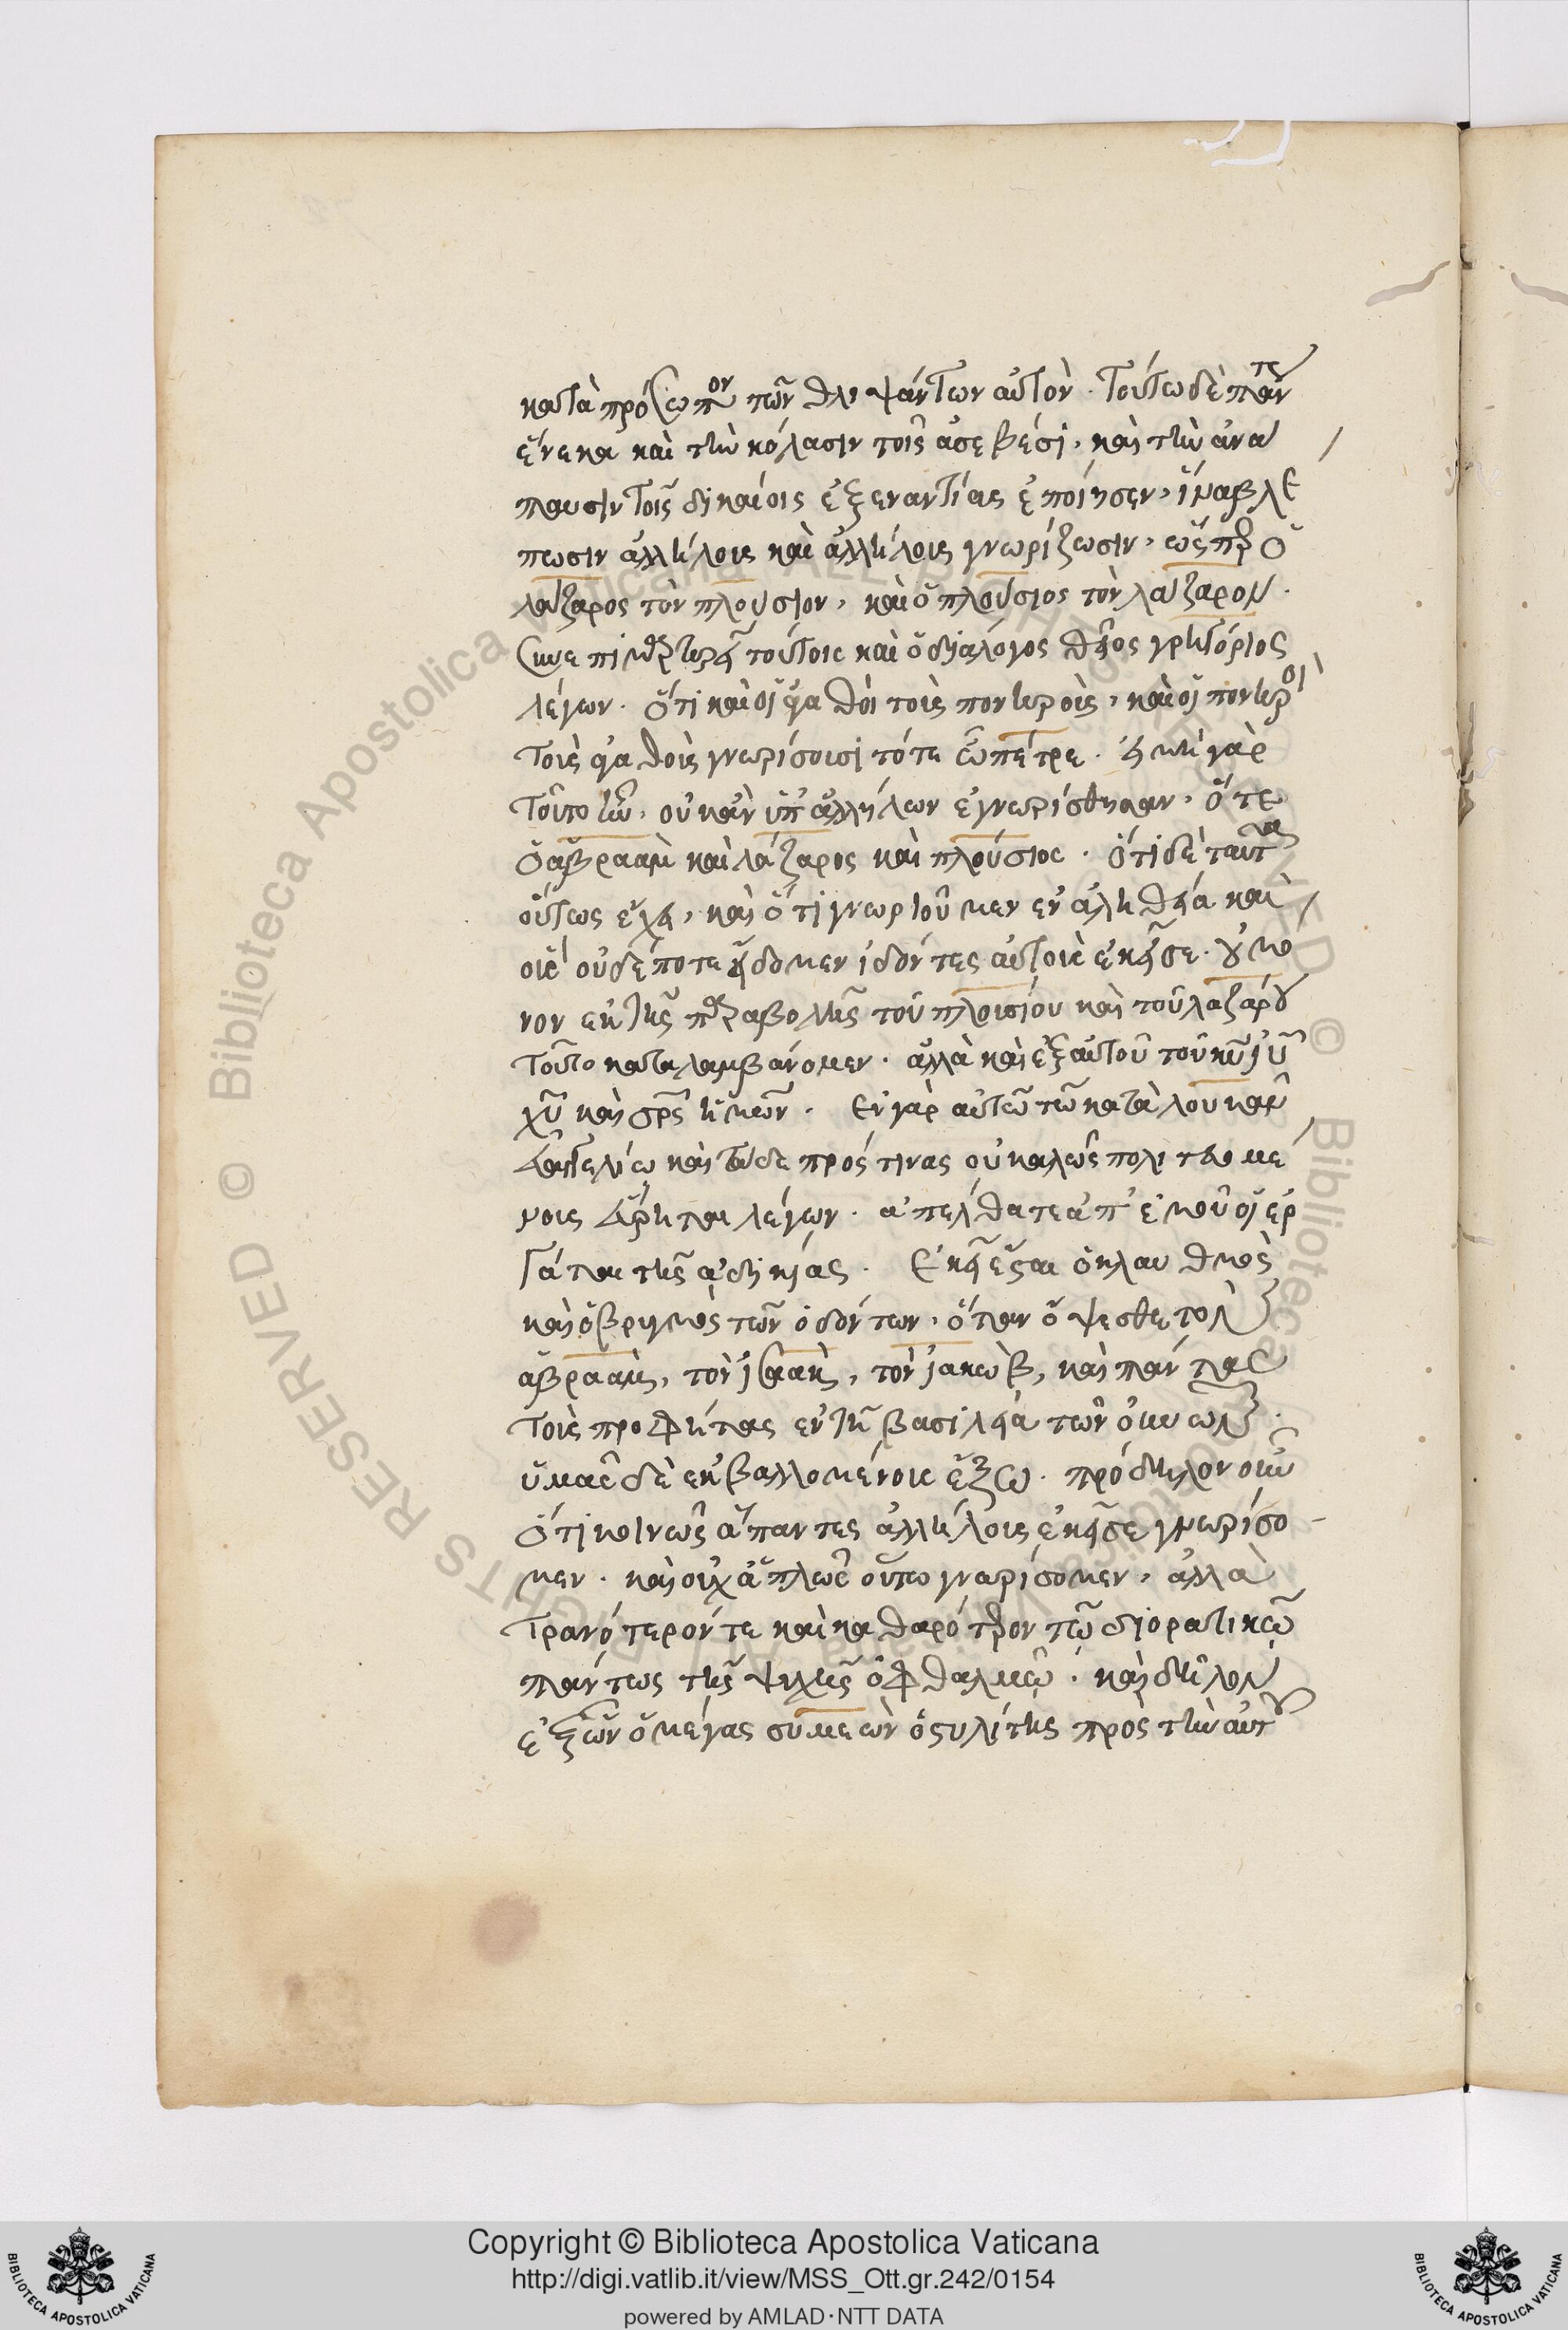 κατὰ πρόσωπον τῶν θλιψάντων αὐτὸν. Τούτω δὲ πάντ
ἕνεκα καὶ τὴν κόλασιν τοῖς ἀσεβέσι, καὶ τὴν ἀνα
παυσιν τοῖς δικαίοις ἐξεναντίας ἐποίησεν, ἵνα βλέ
πωσιν ἀλλήλους καὶ ἀλλήλους γνωρίζωσιν, ὥσπερ ὁ
λάζαρος τὸν πλούσιον, καὶ ὁ πλούσιος τὸν λάζαρον.
συνεπιμαρτυρεῖ τούτοις καὶ ὁ διαλόγος θεῖος γρηγόριος
λέγων. ὅτι καὶ οἱ ἀγαθοὶ τοὺς πονηροὺς, καὶ οἱ πονηροὶ
τοὺς ἀγαθοὺς γνωρίσουσι τότε ὦ πέτρε. εἰ μὴ γὰρ
τοῦτο ἦν, οὐκ ἂν ὑπ' ἀλλήλων ἐγνωρίσθησαν, ὅ τε
ὁ αβραὰμ καὶ λάζαρος καὶ πλούσιος. ὅτι δὲ ταῦτα
οὕτως ἔχει, καὶ ὅτι γνωριοῦμεν ἐν ἀληθεία καὶ
οὓς οὐδέποτε εἴδομεν ἰδόντες αὐτοὺς ἐκεῖσε. οὐ μό
νον ἐκ τῆς παραβολῆς τοῦ πλουσίου καὶ τοῦ λαζάρου
τοῦτο καταλαμβάνομεν. ἀλλὰ καὶ ἐξ αὐτοῦ τοῦ κυ ιυ
χυ καὶ σρς ἡμῶν. Ἐν γὰρ αὐτῶ τῶ κατὰ λουκᾶν
εὐαγγελίω καὶ τάδε πρός τινας οὐ καλῶς πολιτευομέ
νους εἴρηται λέγων. ἀπέλθατε ἀπ' ἐμοῦ οἱ ἐρ
γάται τῆς ἀδικίας. Ἐκεῖ ἔσται ὁ κλαυθμὸς
καὶ ὁ βρυγμὸς τῶν ὀδόντων, ὅταν ὄψεσθε τὸν
ἀβραὰμ, τὸν ἰσαὰκ, τὸν ἰακὼβ, καὶ πάντας
τοὺς προφήτας ἐν τῆ βασιλεία τῶν οὐνων.
ὑμᾶς δὲ ἐκβαλλομένους ἔξω. πρόδηλον οὖν
ὅτι κοινῶς ἅπαντες ἀλλήλους ἐκεῖσε γνωρίσο
μεν. καὶ οὐχ ἁπλῶς οὕτω γνωρίσομεν, ἀλλὰ
τρανότερόν τε καὶ καθαρότερον τῶ διορατικῶ
πάντως τῆς ψυχῆς ὀφθαλμῶ. καὶ δῆλον
ἐξ ὧν ὁ μέγας συμεὼν ὁ στυλίτης πρὸς τὴν αὐτοῦ
Copyright © Biblioteca Apostolica Vaticana
http://digi.vatlib.it/view/MSS_Ott.gr.242/0154
powered by AMLAD·NTT DATA